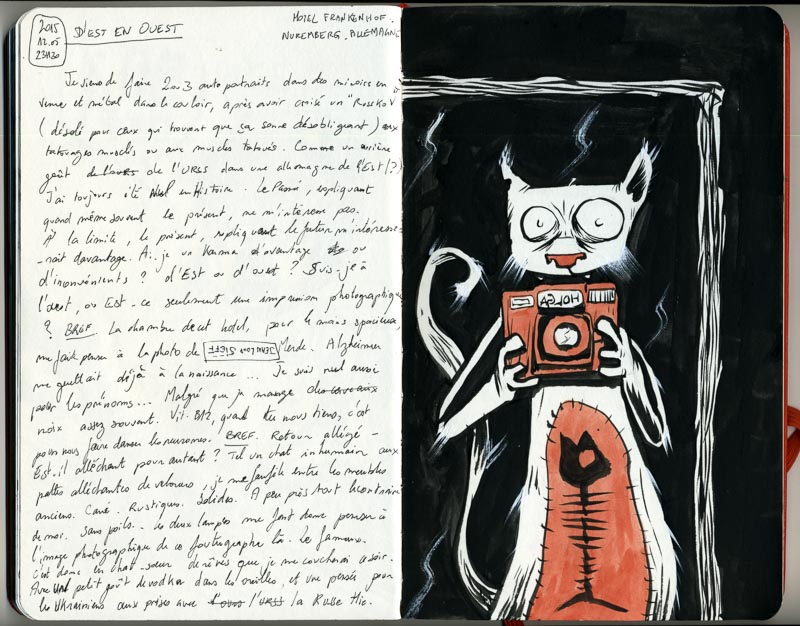 2015
12.05
23H30
D'EST EN OUEST
HOTEL FRANKENHOF.
NUREMBERG. ALLEMAGNE
Je viens de faire 2 ou 3 autoportraits dans des miroirs en
verre et métal dans le couloir, après avoir croisé un "Russkov"
(désolé pour ceux qui trouvent que ça sonne désobligeant) aux
tatouages musclés ou aux muscles tatoués. Comme un arrière
goût de l'URSS dans une allemagne de l'Est (?)
J'ai toujours été nul en Histoire. Le Passé, expliquant
quand même souvent le présent, ne m'intéresse pas.
À la limite, le présent, expliquant le futur m'intéresse-
-rait davantage. Ai-je un Karma d'avantage ou
d'inconvénients ? d'Est ou d'ouest ? Suis-je à
l'ouest, ou Est-ce seulement une impression photographique
? BREF. La chambre de cet hotel, pour le moins spacieuse,
me fait penser à la photo de JEAN LOUP SIEFF Merde. Alzheimer
me guettait déjà à la naissance... Je suis nul aussi
pour les prénoms... Malgré que je mange des
noix assez souvent. Vit. B12, quand tu nous tiens, c'est
pour nous faire danser les neurones. BREF. Retour allégé -
Est-il alléchant pour autant ? Tel un chat inhumain aux
pattes alléchantes de velours, je me faufile entre les meubles
anciens. Carré. Rustiques. Solides. A peu près tout le contraire
de moi. Sans poils... les deux lampes me font donc penser à
l'image photographique de ce foutugraphe là. Le fameux.
C'est donc en chat-sseur de rêves que je me coucherai ce soir.
Avec un petit goût de vodka dans les oreilles, et une pensée pour
les Ukrainiens aux prises avec l'URSS la Russe Hie.
HOLGA